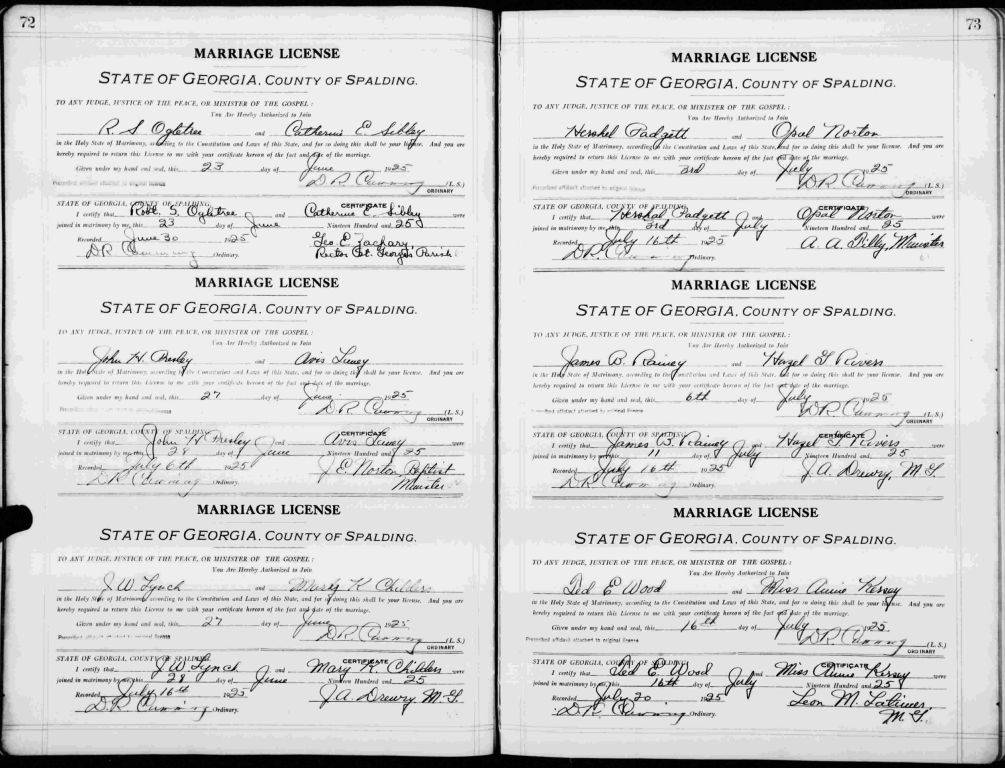 72
MARRIAGE LICENSE
STATE OF GEORGIA, COUNTY OF SPALDING.
TO ANY JUDGE, JUSTICE OF THE PEACE, OR MINISTER OF THE GOSPEL:
You Are Hereby Authorized to Join
R. S. Ogletree and Catherine E Sibley
in the Holy State of Matrimony, according to the Constitution and Laws of this State, and for so doing this shall be your license. And you are
hereby required to return this License to me with your certificate hereon of the fact and date of the marriage.
Given under my hand and seal, this, 23 day of June 1925
Prescribed affidavit attached to original license D R Cumming (L. S.)
ORDINARY
STATE OF GEORGIA, COUNTY OF SPALDING. CERTIFICATE
I certify that Robt. S. Ogletree and Catherine E. Sibley were
joined in matrimony by me, this 23 day of June Nineteen Hundred and 25
Recorded June 30 1925 Geo E. Zachary,
D R Cumming Ordinary. Rector St. George's Parish
MARRIAGE LICENSE
STATE OF GEORGIA, COUNTY OF SPALDING.
TO ANY JUDGE, JUSTICE OF THE PEACE, OR MINISTER OF THE GOSPEL:
You Are Hereby Authorized to Join
John H. Presley and Avis
in the Holy State of Matrimony, according to the Constitution and Laws of this State, and for so doing this shall be your license. And you are
hereby required to return this License to me with your certificate hereon of the fact and date of the marriage.
Given under my hand and seal, this, 27 day of June 1925
Prescribed affidavit attached to original license D R Cumming (L. S.)
ORDINARY
STATE OF GEORGIA, COUNTY OF SPALDING. CERTIFICATE
I certify that John H Presley and Avis were
joined in matrimony by me, this 28 day of June Nineteen Hundred and 25
Recorded July 6th 1925 J E Norton Baptist
D R Cumming Ordinary. Minister
MARRIAGE LICENSE
STATE OF GEORGIA, COUNTY OF SPALDING.
TO ANY JUDGE, JUSTICE OF THE PEACE, OR MINISTER OF THE GOSPEL:
You Are Hereby Authorized to Join
J W Lynch and Mary K Childers
in the Holy State of Matrimony, according to the Constitution and Laws of this State, and for so doing this shall be your license. And you are
hereby required to return this License to me with your certificate hereon of the fact and date of the marriage.
Given under my hand and seal, this, 27 day of June 1925
Prescribed affidavit attached to original license D R Cumming (L. S.)
ORDINARY
STATE OF GEORGIA, COUNTY OF SPALDING. CERTIFICATE
I certify that J W Lynch and Mary K. Childers were
joined in matrimony by me, this 28 day of June Nineteen Hundred and 25
Recorded July 16th 1925 J. A. Drewry M. G.
D R Cumming Ordinary.
73
MARRIAGE LICENSE
STATE OF GEORGIA, COUNTY OF SPALDING.
TO ANY JUDGE, JUSTICE OF THE PEACE, OR MINISTER OF THE GOSPEL:
You Are Hereby Authorized to Join
Hershel Padgett and Opal Norton
in the Holy State of Matrimony, according to the Constitution and Laws of this State, and for so doing this shall be your license. And you are
hereby required to return this License to me with your certificate hereon of the fact and date of the marriage.
Given under my hand and seal, this, 3rd day of July 1925
Prescribed affidavit attached to original license D R Cumming (L. S.)
ORDINARY
STATE OF GEORGIA, COUNTY OF SPALDING. CERTIFICATE
I certify that Hershal Padgett and Opal Norton were
joined in matrimony by me, this 3rd day of July Nineteen Hundred and 25
Recorded July 16th 1925 A. A. Tilly, Minister
D R Cumming Ordinary.
MARRIAGE LICENSE
STATE OF GEORGIA, COUNTY OF SPALDING.
TO ANY JUDGE, JUSTICE OF THE PEACE, OR MINISTER OF THE GOSPEL:
You Are Hereby Authorized to Join
James B. Rainey and Hazel G Rivers
in the Holy State of Matrimony, according to the Constitution and Laws of this State, and for so doing this shall be your license. And you are
hereby required to return this License to me with your certificate hereon of the fact and date of the marriage.
Given under my hand and seal, this, 6th day of July 1925
Prescribed affidavit attached to original license D R Cumming (L. S.)
ORDINARY
STATE OF GEORGIA, COUNTY OF SPALDING. CERTIFICATE
I certify that James B. Rainey and Hazel G Rivers were
joined in matrimony by me, this 11 day of July Nineteen Hundred and 25
Recorded July 16th 1925 J. A. Drewry, M. G.
D R Cumming Ordinary.
MARRIAGE LICENSE
STATE OF GEORGIA, COUNTY OF SPALDING.
TO ANY JUDGE, JUSTICE OF THE PEACE, OR MINISTER OF THE GOSPEL:
You Are Hereby Authorized to Join
Ted E Wood and Miss Annie Kersey
in the Holy State of Matrimony, according to the Constitution and Laws of this State, and for so doing this shall be your license. And you are
hereby required to return this License to me with your certificate hereon of the fact and date of the marriage.
Given under my hand and seal, this, 16th day of July 1925
Prescribed affidavit attached to original license D R Cumming (L. S.)
ORDINARY
STATE OF GEORGIA, COUNTY OF SPALDING. CERTIFICATE
I certify that Ted E. Wood and Miss Annie Kersey were
joined in matrimony by me, this 16th day of July Nineteen Hundred and 25
Recorded July 20 1925 Leon M. Latimer,
D R Cumming Ordinary. M. G.